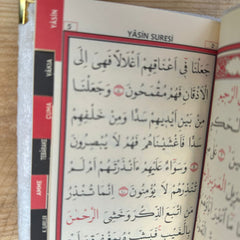 YÂSÎN SURESİ
5
جَعَلْنَا فِى اَعْنَاقِهِمْ اَغْلَالًا فَهِىَ اِلَى
الْاَذْقَانِ فَهُمْ مُقْمَحُونَ وَجَعَلْنَا
مِنْ بَيْنِ اَيْدِيهِمْ سَدًّا وَمِنْ خَلْفِهِمْ
سَدًّا فَاَغْشَيْنَاهُمْ فَهُمْ لَا يُبْصِرُونَ
وَسَوَاءٌ عَلَيْهِمْ ءَاَنْذَرْتَهُمْ اَمْ لَمْ
تُنْذِرْهُمْ لَا يُؤْمِنُونَ اِنَّمَا تُنْذِرُ
مَنِ اتَّبَعَ الذِّكْرَ وَخَشِىَ الرَّحْمٰنَ
YÂSÎN
VÂKIA
CUMA
TEBÂREKE
AMME